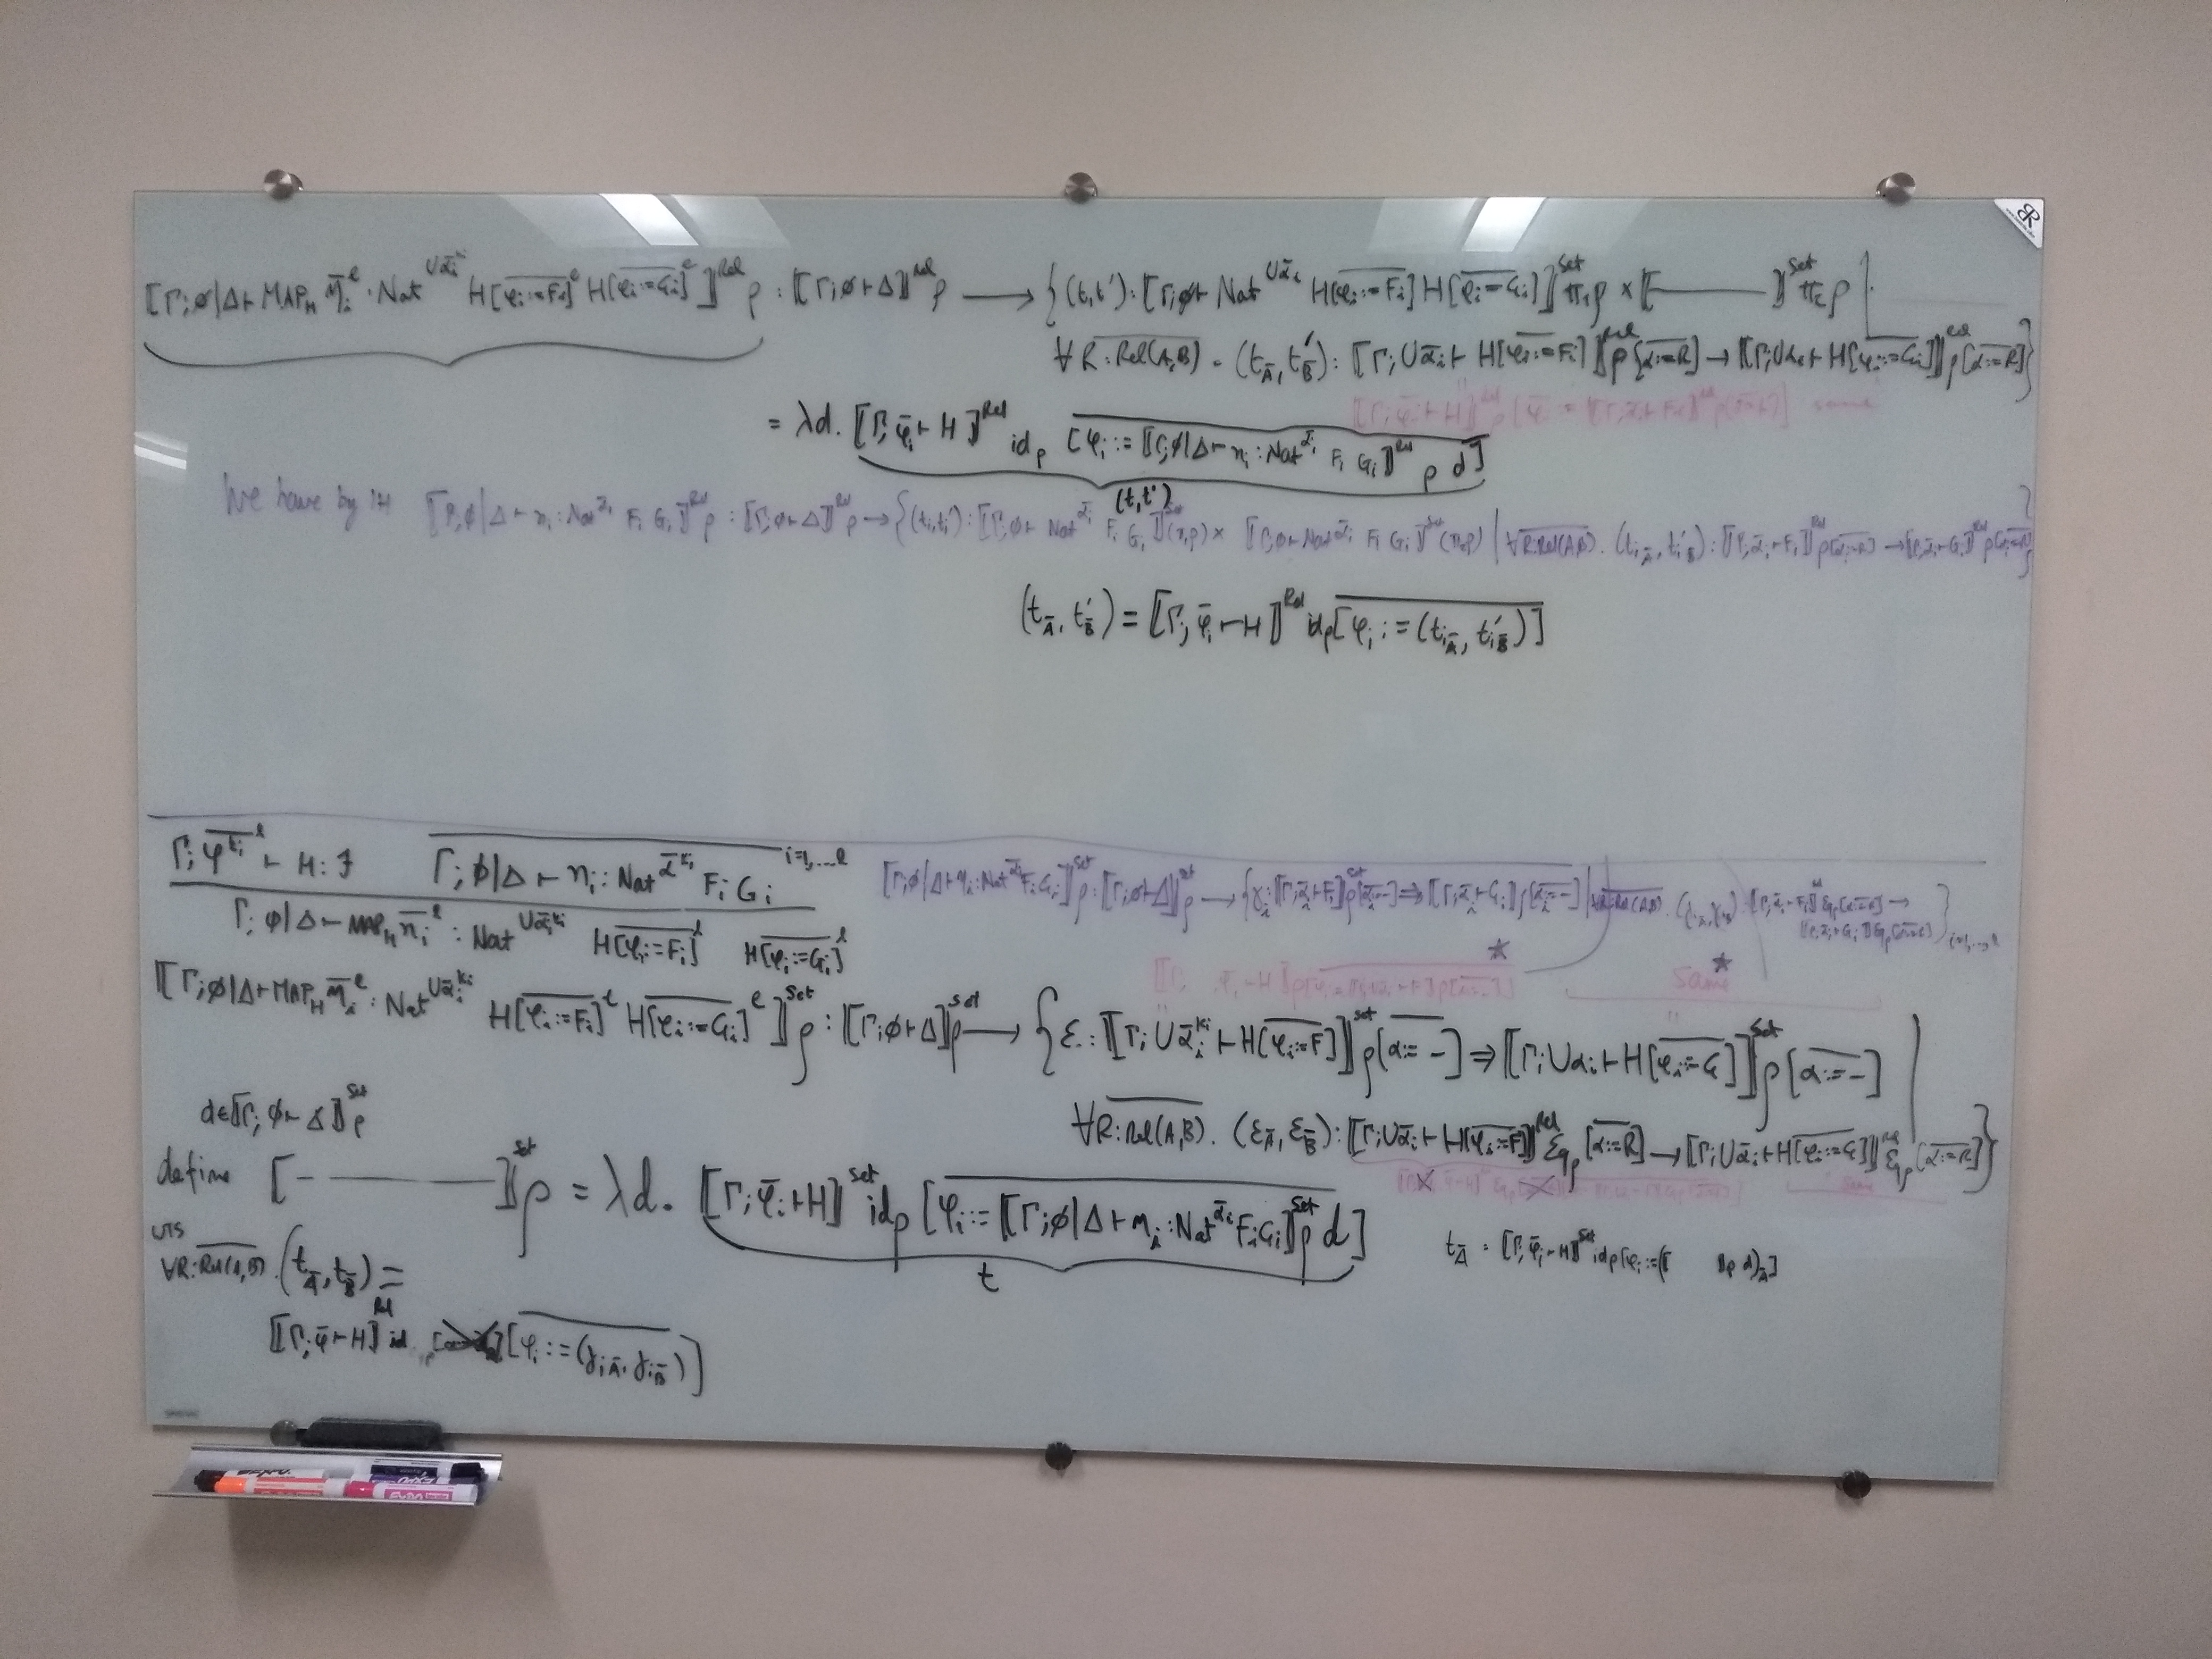 ⟦Γ;∅|Δ⊢MAP_H η̄_i^ℓ : Nat^{∪ᾱ_i^{k_i}} H[\overline{φ_i:=F_i}]^ℓ H[\overline{φ_i:=G_i}]^ℓ⟧^{Rel} ρ : ⟦Γ;∅⊢Δ⟧^{Rel} ρ ⟶ {(t,t') : ⟦Γ;∅⊢ Nat^{∪ᾱ_i} H[\overline{φ_i:=F_i}] H[\overline{φ_i:=G_i}]⟧^{Set} π₁ρ × ⟦———⟧^{Set} π₂ρ |
∀\overline{R:Rel(A,B)} . (t_Ā, t'_B̄) : ⟦Γ;∪ᾱ_i⊢ H[\overline{φ_i:=F_i}]⟧^{Rel} ρ[\overline{α:=R}] → ⟦Γ;∪α_i⊢H[\overline{φ_i:=G_i}]⟧^{Rel} ρ[\overline{α:=R}]}
same
= λd. ⟦Γ;φ̄_i⊢H⟧^{Rel} id_ρ [\overline{φ_i:=⟦Γ;∅|Δ⊢η_i:Nat^{ᾱ_i} F_i G_i⟧^{Rel} ρ d}]
(t,t')
We have by IH ⟦Γ;∅|Δ⊢η_i:Nat^{ᾱ_i} F_i G_i⟧^{Rel} ρ : ⟦Γ;∅⊢Δ⟧^{Rel} ρ → {(t_i,t_i') : ⟦Γ;∅⊢Nat^{ᾱ_i} F_i G_i⟧^{Set}(π₁ρ) × ⟦Γ;∅⊢Nat^{ᾱ_i} F_i G_i⟧^{Set}(π₂ρ) | ∀\overline{R:Rel(A,B)}. (t_{iĀ}, t'_{iB̄}) : ⟦Γ;ᾱ_i⊢F_i⟧^{Rel} ρ[\overline{α_i:=R}] → ⟦Γ;ᾱ_i⊢G_i⟧^{Rel} ρ[\overline{α_i:=R}]}
(t_Ā, t'_B̄) = ⟦Γ;φ̄_i⊢H⟧^{Rel} id_ρ[\overline{φ_i:=(t_{iĀ}, t'_{iB̄})}]
Γ;\overline{φ^{k_i}}^ℓ ⊢ H:F    \overline{Γ;∅|Δ⊢η_i:Nat^{ᾱ^{k_i}} F_i G_i}^{i=1,…ℓ}
Γ;∅|Δ⊢MAP_H η̄_i^ℓ : Nat^{∪ᾱ_i^{k_i}} H[\overline{φ_i:=F_i}]^ℓ H[\overline{φ_i:=G_i}]^ℓ
⟦Γ;∅|Δ⊢η_i:Nat^{ᾱ_i} F_i G_i⟧^{Set} ρ : ⟦Γ;∅⊢Δ⟧^{Set} ρ → {γ_i : ⟦Γ;ᾱ_i⊢F_i⟧^{Set} ρ[\overline{α_i:=-}] ⇒ ⟦Γ;ᾱ_i⊢G_i⟧ρ[\overline{α_i:=-}] | ∀\overline{R:Rel(A,B)}. (γ_{iĀ}, γ_{iB̄}) : ⟦Γ;ᾱ_i⊢F_i⟧^{Rel} Eq_ρ[\overline{α:=R}] →
⟦Γ;ᾱ_i⊢G_i⟧Eq_ρ[\overline{α:=R}]}_{i=1,…,ℓ}
★ same ★
⟦Γ;∅|Δ⊢MAP_H η̄_i^ℓ : Nat^{∪ᾱ_i^{k_i}} H[\overline{φ_i:=F_i}]^ℓ H[\overline{φ_i:=G_i}]^ℓ⟧^{Set} ρ : ⟦Γ;∅⊢Δ⟧^{Set} ρ ⟶ {ε : ⟦Γ;∪ᾱ_i^{k_i}⊢H[\overline{φ_i:=F}]⟧^{Set} ρ[\overline{α:=-}] ⇒ ⟦Γ;∪α_i⊢H[\overline{φ_i:=G}]⟧^{Set} ρ[\overline{α:=-}] |
∀\overline{R:Rel(A,B)}. (ε_Ā, ε_B̄) : ⟦Γ;∪ᾱ_i⊢H[\overline{φ_i:=F}]⟧^{Rel} Eq_ρ[\overline{α:=R}] → ⟦Γ;∪ᾱ_i⊢H[\overline{φ_i:=G}]⟧^{Rel} Eq_ρ[\overline{α:=R}]}
same
d∈⟦Γ;∅⊢Δ⟧^{Set} ρ
define ⟦- ———⟧^{Set} ρ = λd. ⟦Γ;φ̄_i⊢H⟧^{Set} id_ρ [\overline{φ_i:=⟦Γ;∅|Δ⊢η_i:Nat^{ᾱ_i} F_i G_i⟧^{Set} ρ d}]
t
t_Ā = ⟦Γ;φ̄_i⊢H⟧^{Set} id_ρ[φ_i:=(⟦ ⟧ρ d)_Ā]
WTS
∀\overline{R:Rel(A,B)}. (t_Ā, t_B̄) =
⟦Γ;φ̄⊢H⟧^{Rel} id_ρ [\overline{φ_i:=(γ_{iĀ}, γ_{iB̄})}]